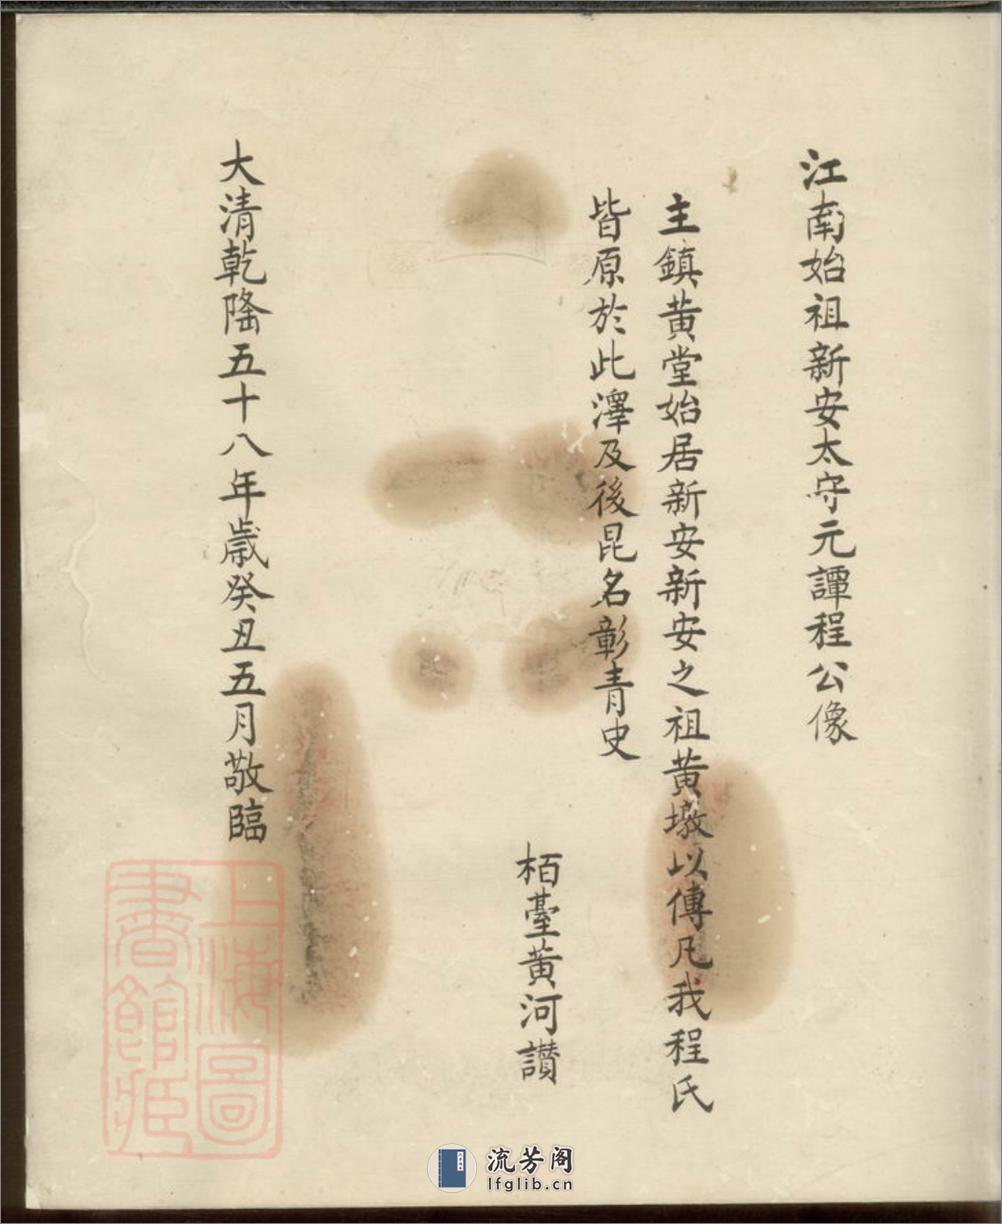 江南始祖新安太守元譚程公像
主鎮黄堂始居新安新安之祖黄墩以傳凡我程氏
皆原於此澤及後昆名彰青史
栢臺黄河讃
大清乾隆五十八年歲癸丑五月敬臨
上海圖
書館藏
流芳阁
lfglib.cn